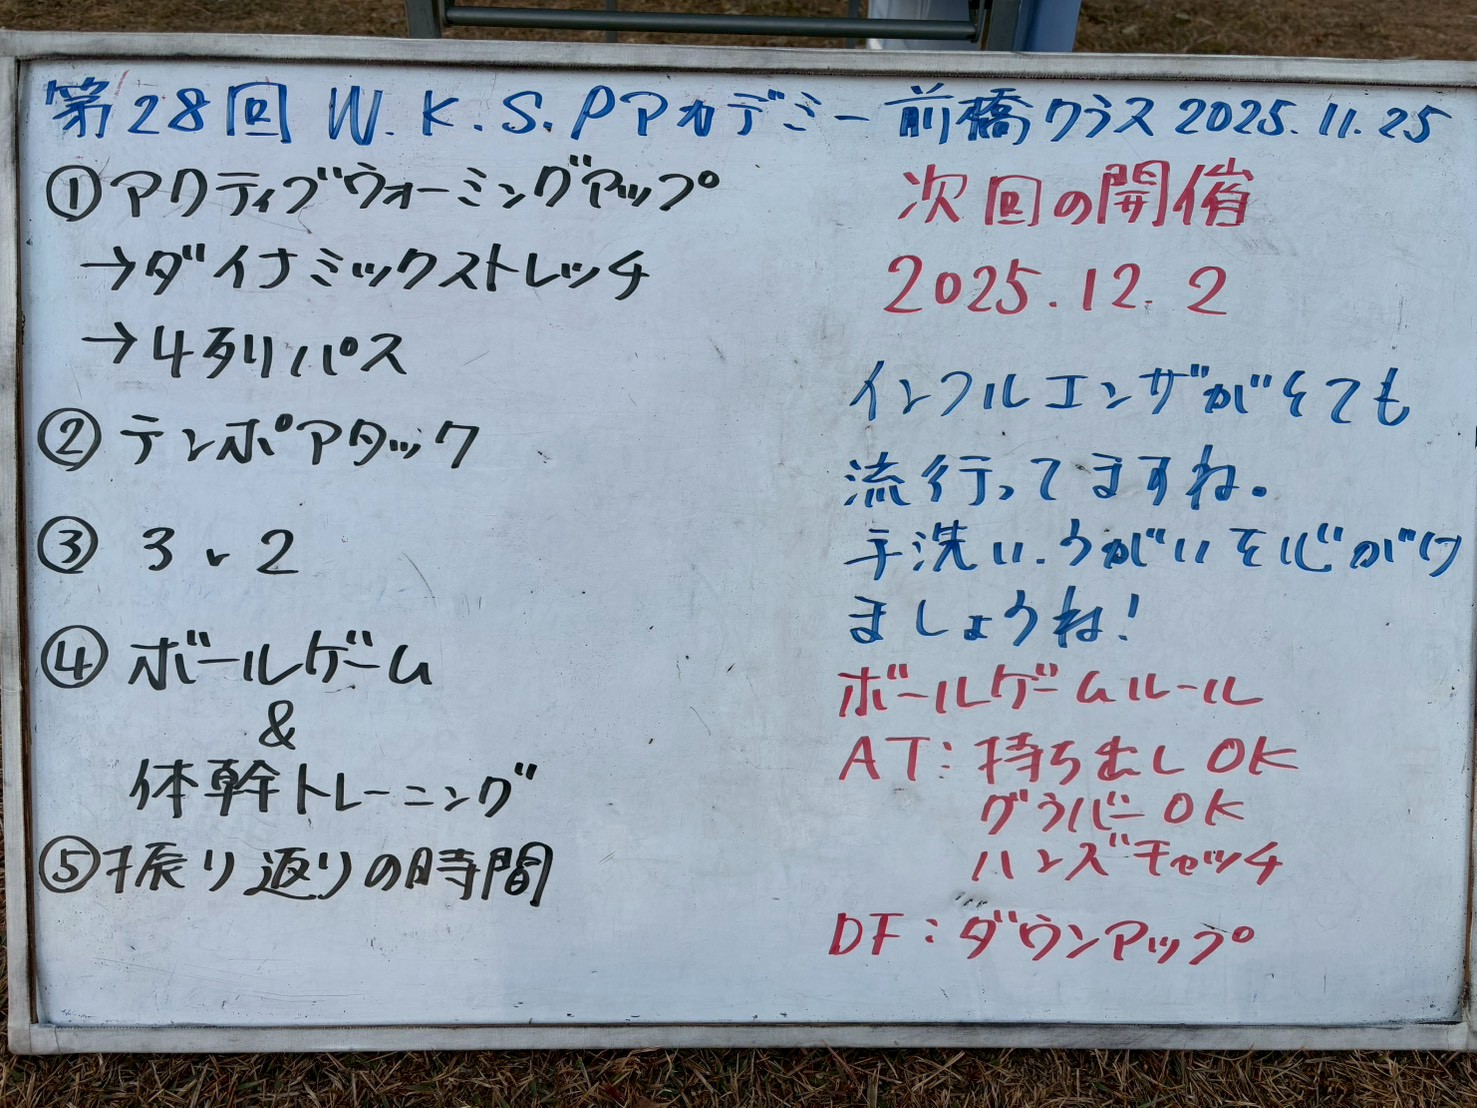 第28回 W.K.S.Pアカデミー 前橋クラス 2025.11.25
①アクティブウォーミングアップ
→ダイナミックストレッチ
→4列パス
②テンポアタック
③ 3v2
④ボールゲーム
&
体幹トレーニング
⑤振り返りの時間
次回の開催
2025.12.2
インフルエンザがとても
流行ってますね。
手洗い.うがいを心がけ
ましょうね!
ボールゲームルール
AT:持ち出しOK
グラバーOK
ハンズキャッチ
DF:ダウンアップ